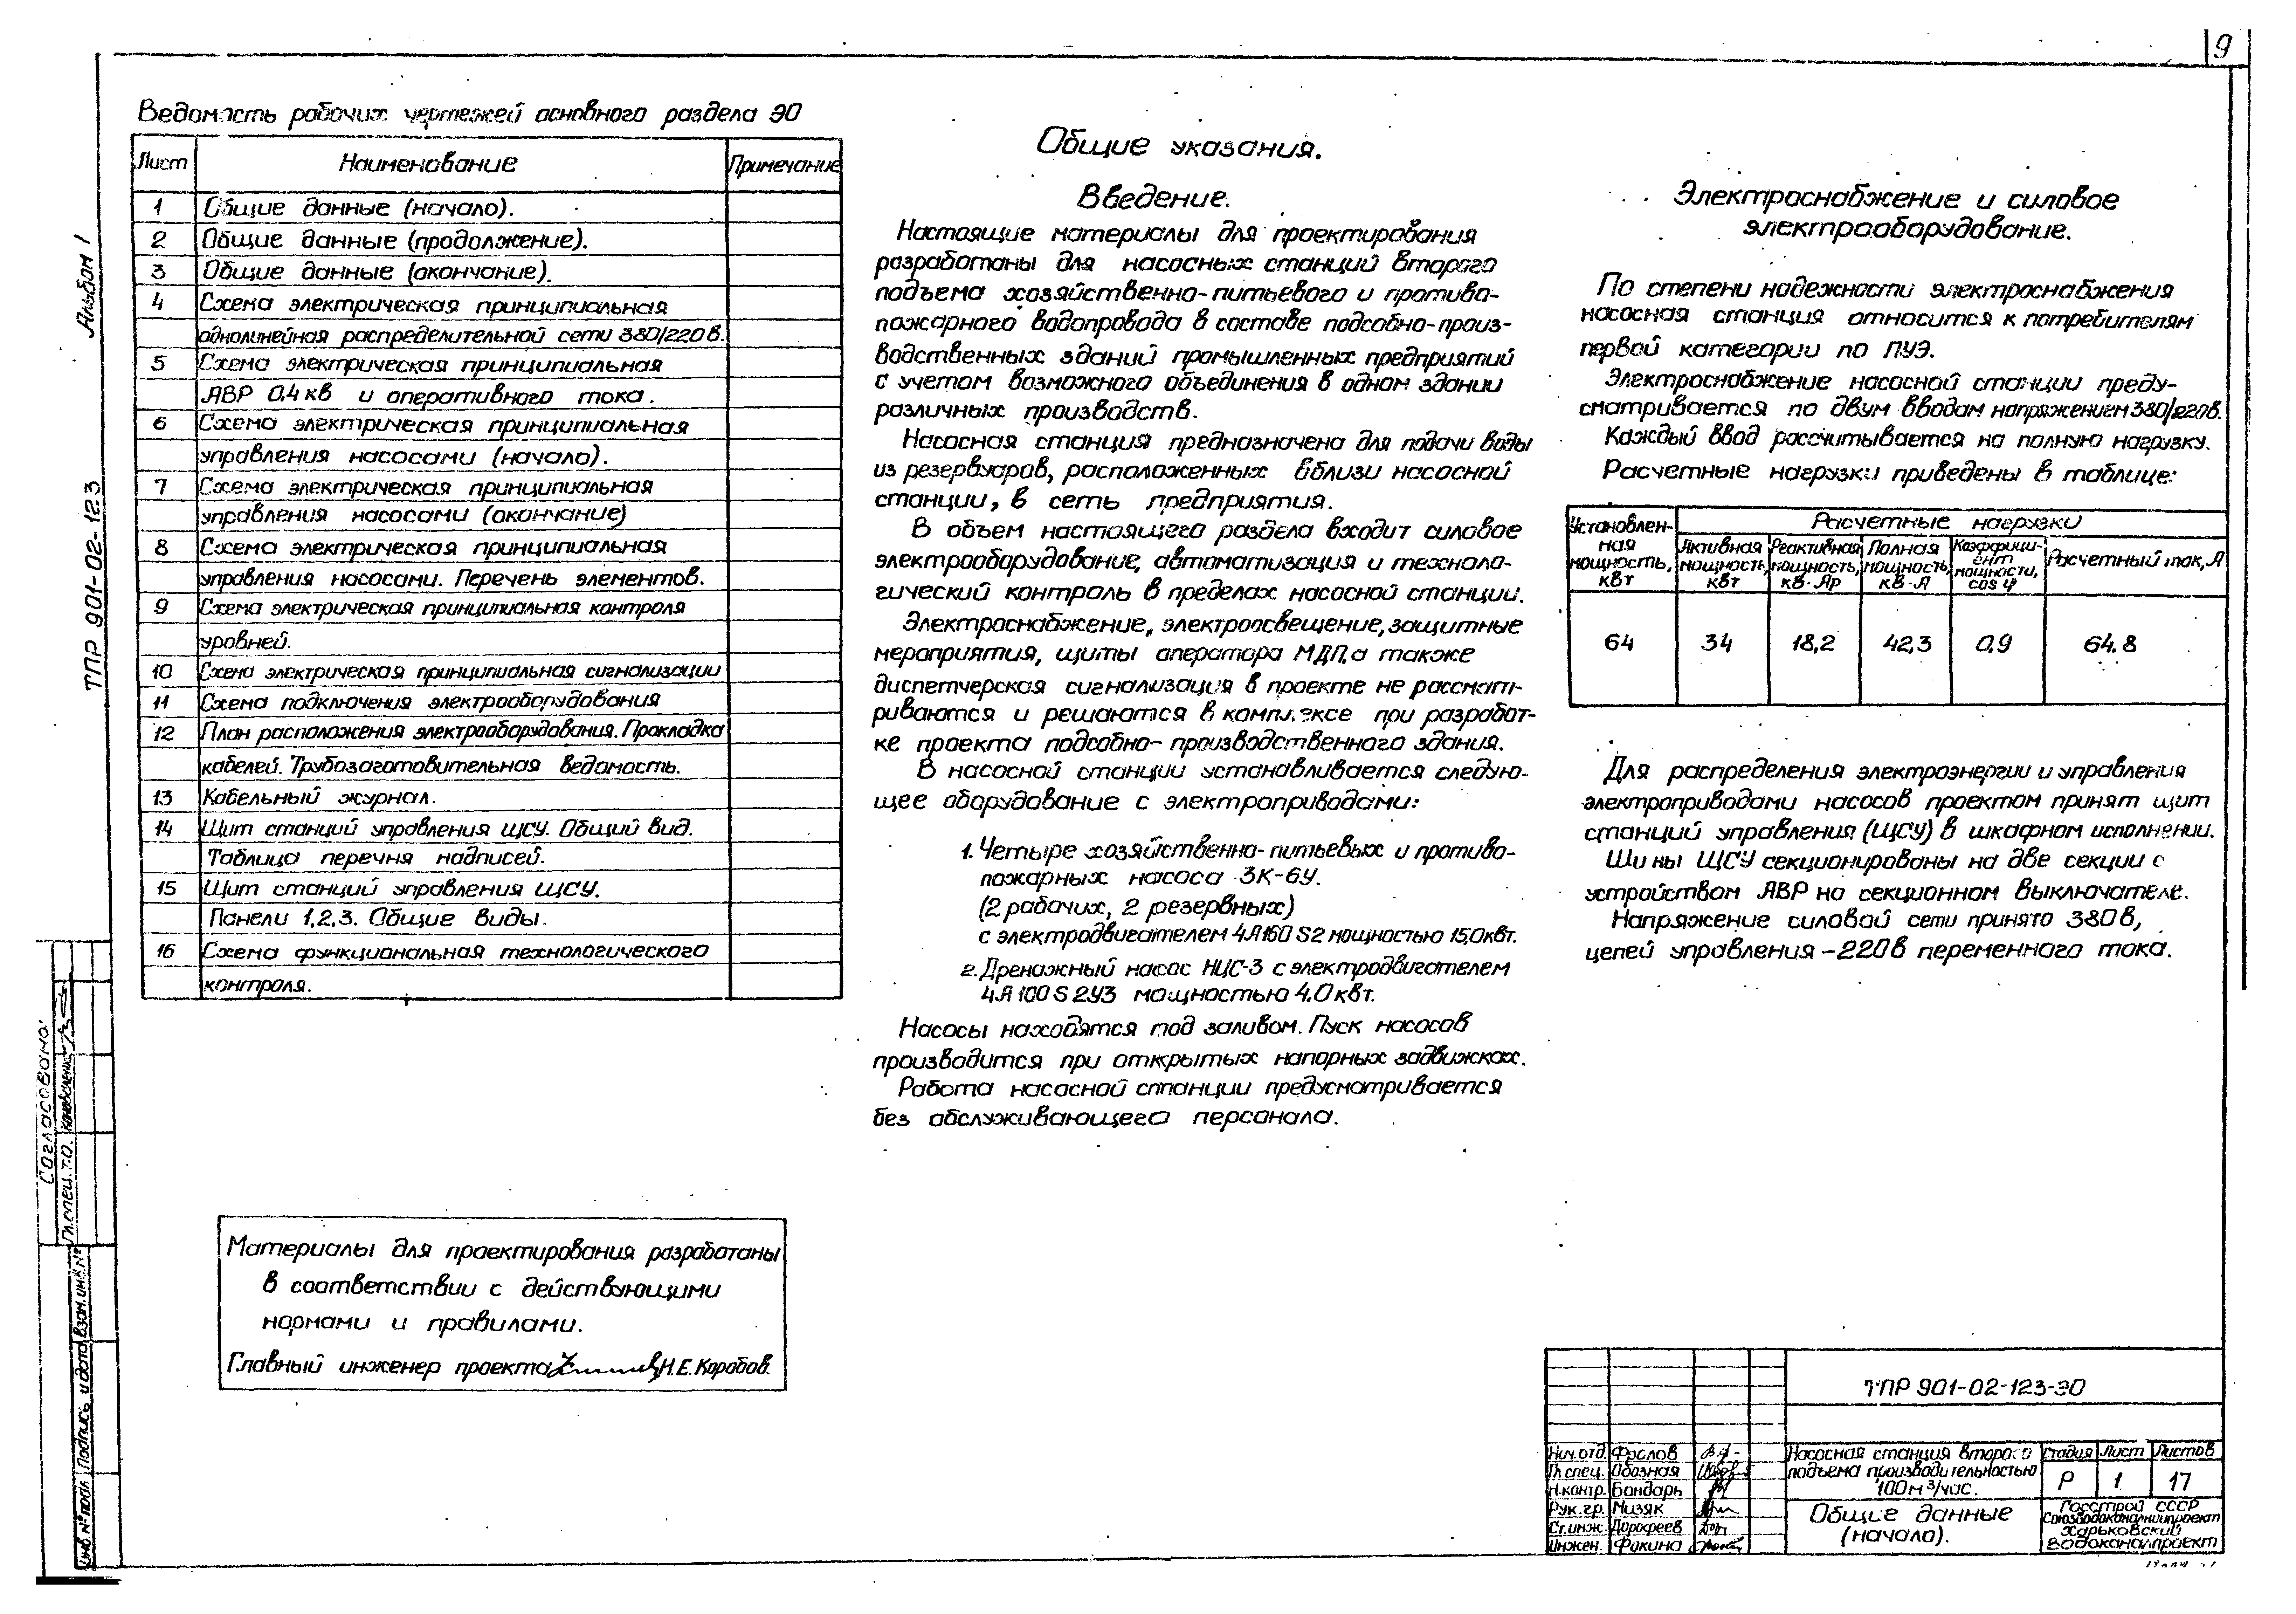 9
Альбом 1
ТПР 901-02-123
Ведомость рабочих чертежей основного раздела ЭО
Лист Наименование Примечание
1 Общие данные (начало).
2 Общие данные (продолжение).
3 Общие данные (окончание).
4 Схема электрическая принципиальная
однолинейная распределительной сети 380/220в.
5 Схема электрическая принципиальная
АВР 0,4кв и оперативного тока.
6 Схема электрическая принципиальная
управления насосами (начало).
7 Схема электрическая принципиальная
управления насосами (окончание)
8 Схема электрическая принципиальная
управления насосами. Перечень элементов.
9 Схема электрическая принципиальная контроля
уровней.
10 Схема электрическая принципиальная сигнализации
11 Схема подключения электрооборудования
12 План расположения электрооборудования. Прокладка
кабелей. Трубозаготовительная ведомость.
13 Кабельный журнал.
14 Щит станций управления ЩСУ. Общий вид.
Таблица перечня надписей.
15 Щит станций управления ЩСУ.
Панели 1,2,3. Общие виды.
16 Схема функциональная технологического
контроля.
Материалы для проектирования разработаны
в соответствии с действующими
нормами и правилами.
Главный инженер проекта Н.Е. Коробов.
Общие указания.
Введение.
Настоящие материалы для проектирования
разработаны для насосных станций второго
подъема хозяйственно-питьевого и противо-
пожарного водопровода в составе подсобно-произ-
водственных зданий промышленных предприятий
с учетом возможного объединения в одном здании
различных производств.
Насосная станция предназначена для подачи воды
из резервуаров, расположенных вблизи насосной
станции, в сеть предприятия.
В объем настоящего раздела входит силовое
электрооборудование, автоматизация и техноло-
гический контроль в пределах насосной станции.
Электроснабжение, электроосвещение, защитные
мероприятия, щиты оператора МДП, а также
диспетчерская сигнализация в проекте не рассмат-
риваются и решаются в комплексе при разработ-
ке проекта подсобно-производственного здания.
В насосной станции устанавливается следую-
щее оборудование с электроприводами:
1. Четыре хозяйственно-питьевых и противо-
пожарных насоса 3К-6У.
(2 рабочих, 2 резервных)
с электродвигателем 4А160 S2 мощностью 15,0квт.
2. Дренажный насос НЦС-3 с электродвигателем
4А 100 S 2У3 мощностью 4,0 квт.
Насосы находятся под заливом. Пуск насосов
производится при открытых напорных задвижках.
Работа насосной станции предусматривается
без обслуживающего персонала.
Электроснабжение и силовое
электрооборудование.
По степени надежности электроснабжения
насосная станция относится к потребителям
первой категории по ПУЭ.
Электроснабжение насосной станции преду-
сматривается по двум вводам напряжением 380/220в.
Каждый ввод рассчитывается на полную нагрузку.
Расчетные нагрузки приведены в таблице:
Установлен-
ная
мощность,
квт
Расчетные нагрузки
Активная
мощность,
квт
Реактивная
мощность,
кв·Ар
Полная
мощность,
кв·А
Коэффици-
ент
мощности,
cos φ
Расчетный ток, А
64 34 18,2 42,3 0,9 64.8
Для распределения электроэнергии и управления
электроприводами насосов проектом принят щит
станций управления (ЩСУ) в шкафном исполнении.
Шины ЩСУ секционированы на две секции с
устройством АВР на секционном выключателе.
Напряжение силовой сети принято 380в,
цепей управления - 220в переменного тока.
Согласовано:
Гл.спец. Т.О.
Инв. № подл. Подпись и дата Взам. инв. №
ТПР 901-02-123-ЭО
Нач.отд. Фролов
Гл.спец. Обозная
Н.контр. Бондарь
Рук.гр. Мизяк
Ст.инж. Дорофеев
Инжен. Фокина
Насосная станция второго
подъема производительностью
100 м³/час.
Стадия Лист Листов
Р 1 17
Общие данные
(начало).
Госстрой СССР
Союзводоканалниипроект
Харьковский
Водоканалпроект